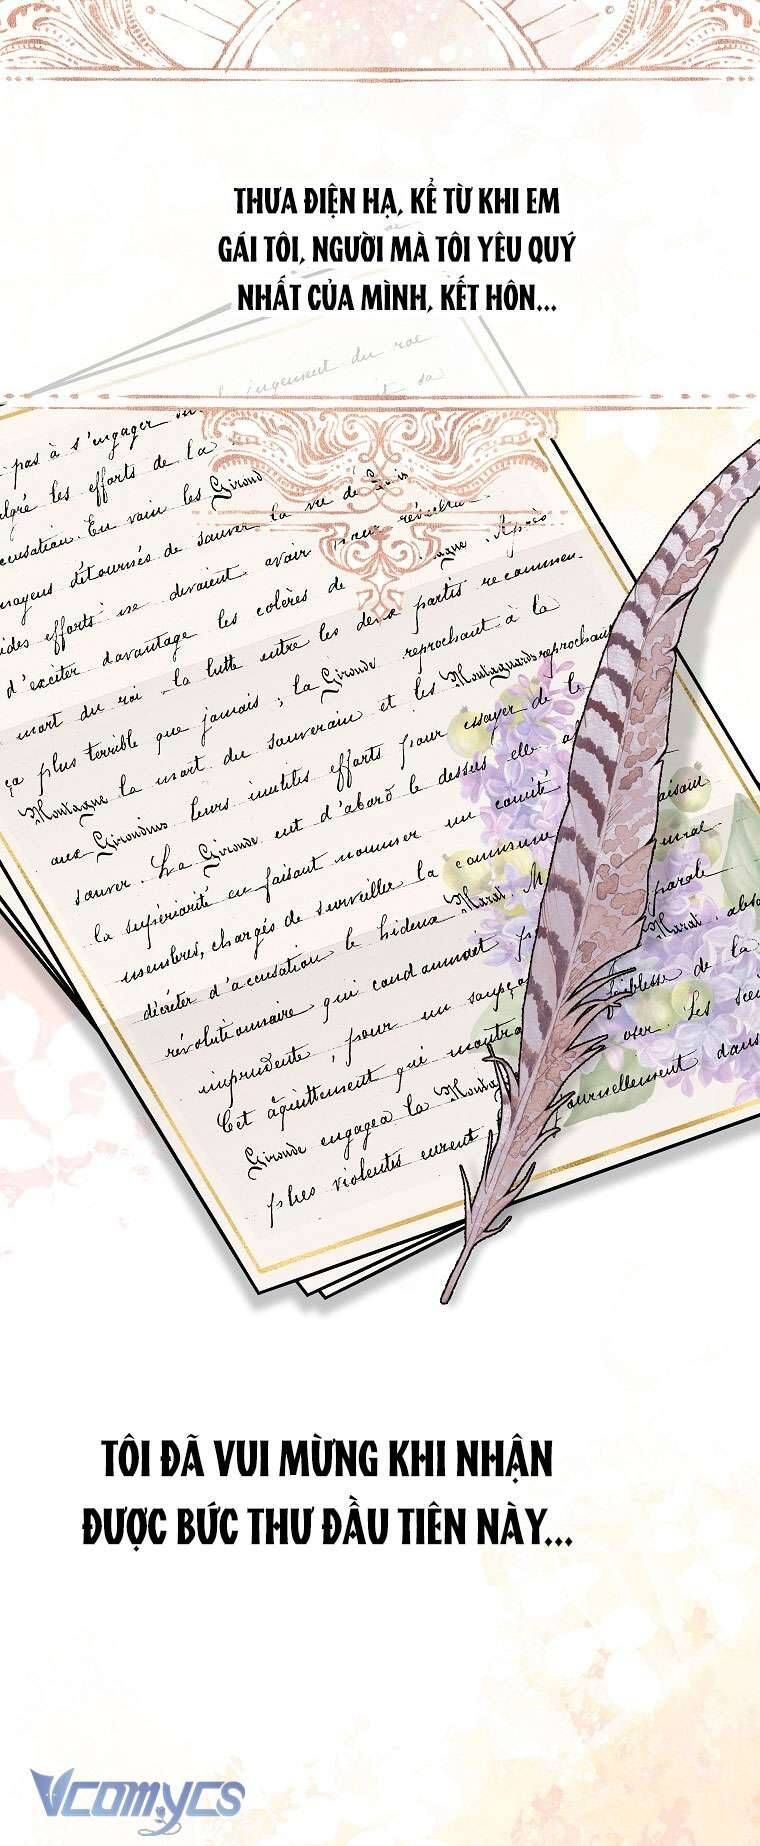 THƯA ĐIỆN HẠ, KỂ TỪ KHI EM
GÁI TÔI, NGƯỜI MÀ TÔI YÊU QUÝ
NHẤT CỦA MÌNH, KẾT HÔN...
jugement du roi
pas à s'engager
les efforts de la
accusation. En vain les Girond
détournés de sauver la vie de Louis
efforts ne devaient avoir pour résultat
d'exciter davantage les colères de Après
mort du roi la lutte entre les deux partis recommen-
ça plus terrible que jamais ; la Gironde reprochant à la
Montagne la mort du souverain et les Montagnards reprochant
aux Girondins leurs inutiles efforts pour essayer de le
sauver. La Gironde eut d'abord le dessus elle
la supériorité en faisant nommer un comité
membres, chargés de surveiller la commune
décréter d'accusation le hideux Marat. parole
révolutionnaire qui condamnait Marat. abso
imprudente, pour un soupçon faiblesse de la
Cet acquittement qui montra oser. Les
Gironde engagea la Montag journellement dans
plus violentes eurent
TÔI ĐÃ VUI MỪNG KHI NHẬN
ĐƯỢC BỨC THƯ ĐẦU TIÊN NÀY...
Vcomycs